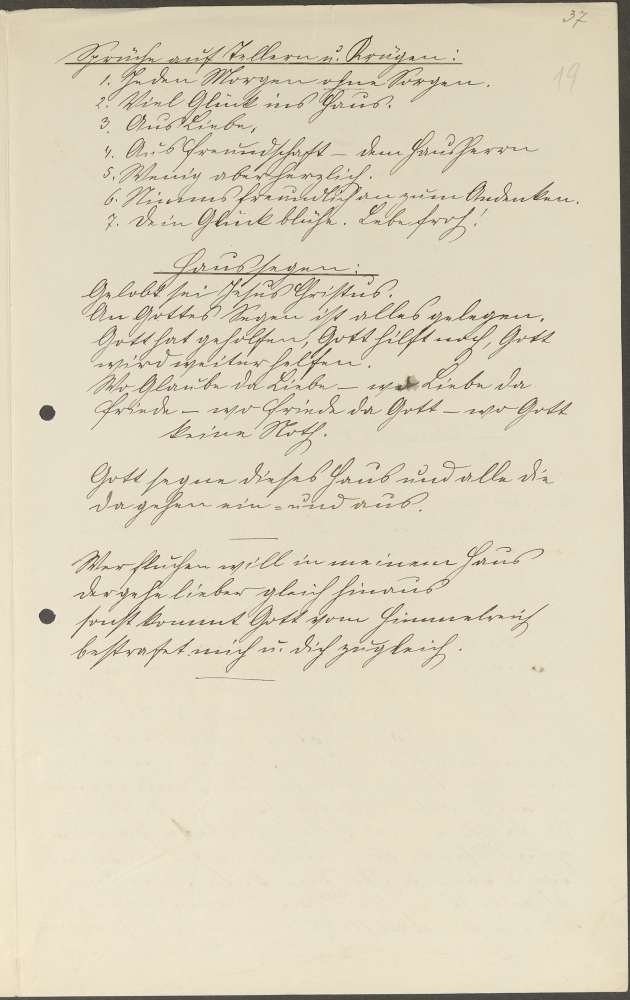 37
19
Sprüche auf Tellern u. Krügen:
1. Jeden Morgen ohne Sorgen.
2. Viel Glück ins Haus.
3. Aus Liebe,
4. Aus Freundschaft – dem Hausherrn
5. Wenig aber herzlich.
6. Nimms freundlich an zum Andenken.
7. Dein Glück blühe. Lebe froh!
Haussegen:
Gelobt sei Jesus Christus.
An Gottes Segen ist alles gelegen.
Gott hat geholfen, Gott hilft noch, Gott
wird weiter helfen.
Wo Glaube da Liebe – wo Liebe da
Friede – wo Friede da Gott – wo Gott
keine Noth.
Gott segne dieses Haus und alle die
da gehen ein- und aus.
Wer fluchen will in meinem Haus
der gehe lieber gleich hinaus
sonst kommt Gott vom Himmelreich
bestrafet mich u. dich zugleich.